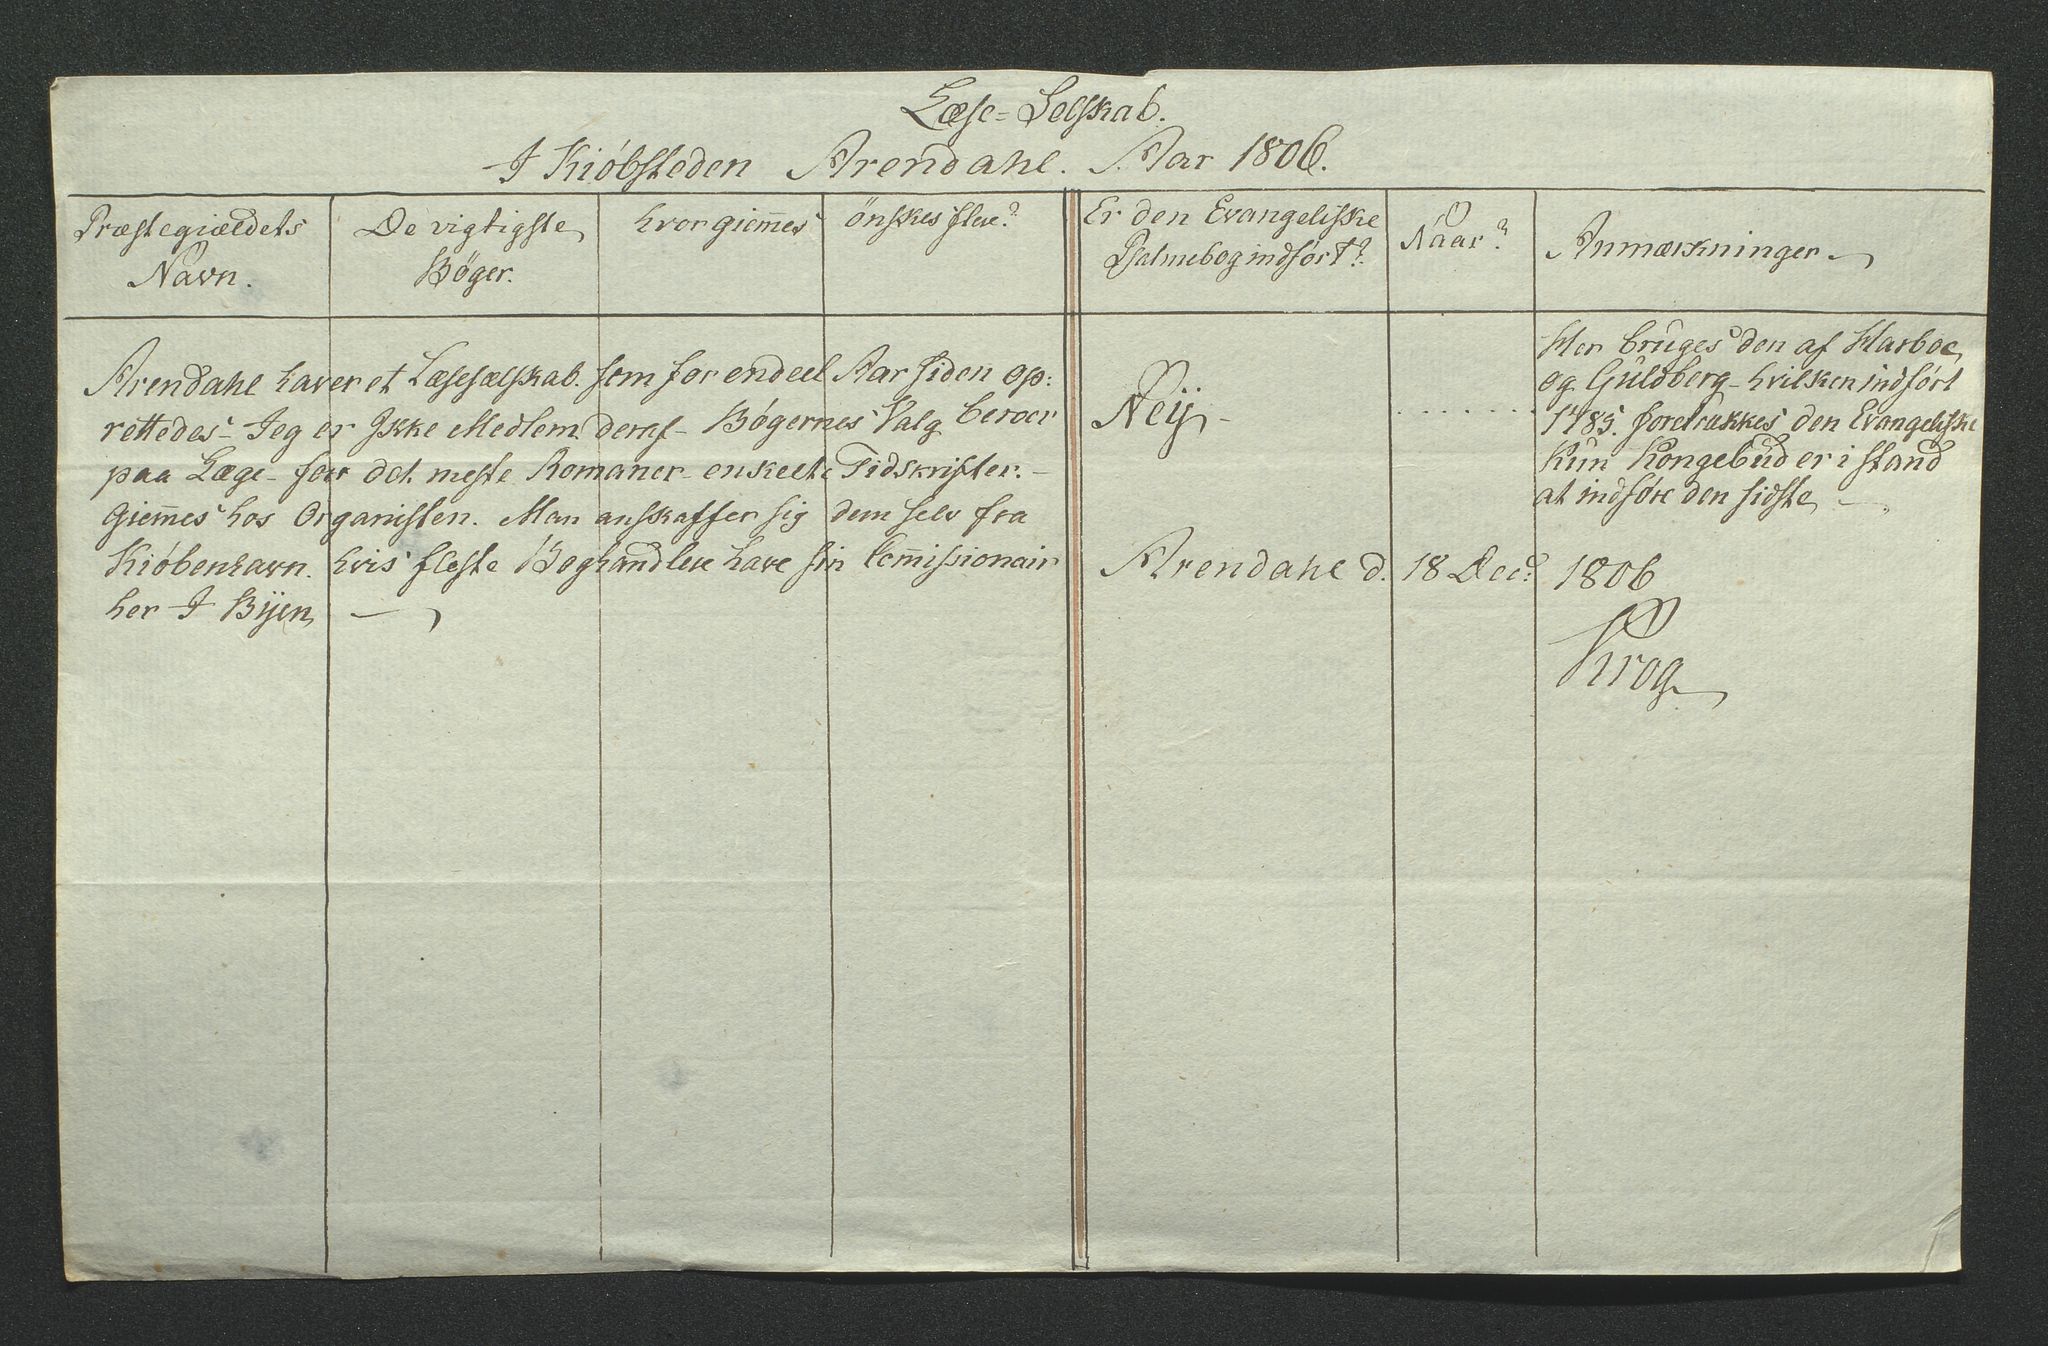 Læse-Selskab.
I Kiöbsteden Arendahl. Aar 1806.
Præstegiældets Navn.
De vigtigste Bøger.
hvor giem̅es
önskes flere?
Er den Evangeliske Psalmebog indfört?
Naar?
Anmærkninger
Arendahl haver et Læsesælskab. som for endeel Aar siden op:
rettedes - Jeg er Ikke Medlem deraf - Bøgernes Valg beroer
paa Læge - for det meste Romaner - enkelte Tidskrifter. -
Giem̅es hos Organisten. Man anskaffer sig dem selv fra
Kiöbenhavn. hvis fleste Boghandlere have sin Com̅issionair
her I Byen -
Neij -
Her bruges den af Harboe
og Guldberg - hvilken indfört
1785. foretrækkes den Evangeliske
Kun Kongebud er i stand
at indföre den sidste -
Arendahl d. 18 Dec: 1806
Krog